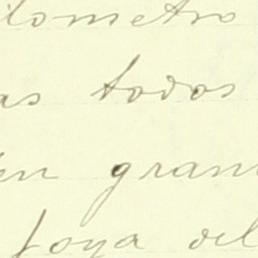 ilometro
as todos
en gran
Joya del